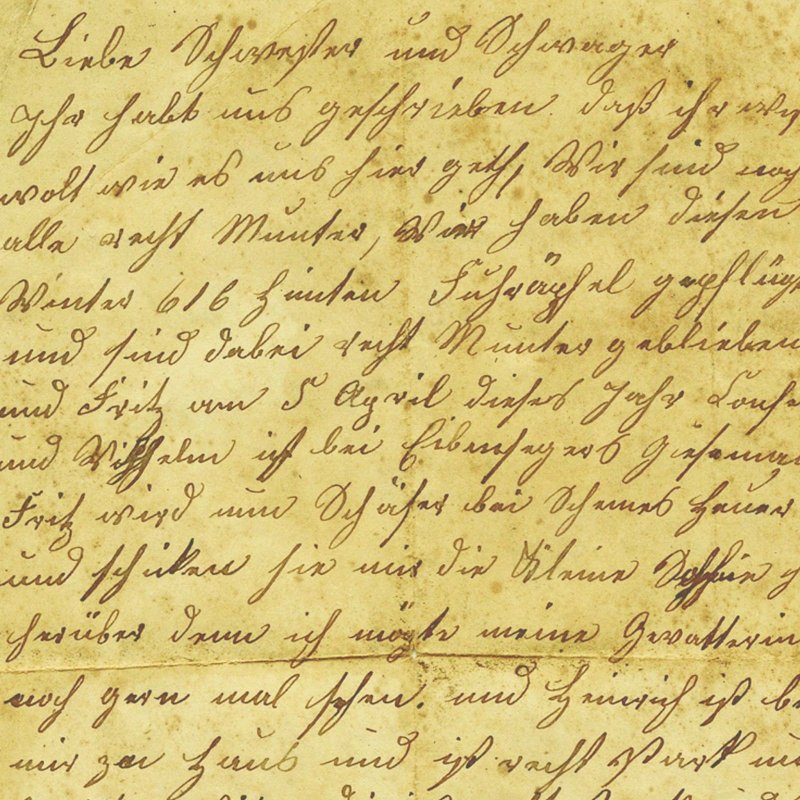 Liebe Schwester und Schwager
Ihr habt uns geschrieben daß ihr
wolt wie es uns hier geth, Wir sind noch
alle recht Munter, Wir haben diesen
Winter 616 Himten Fuhräpfel gepflügt
und sind dabei recht Munter geblieben
und Fritz am 5 April dieses Jahr Confe
und Wilhelm ist bei
Fritz wird nun Schäfer bei Heuer
und schicken sie mir die Kleine Sophie
herüber denn ich mögte meine Gevatterin
noch gern mal sehen. und Heinrich ist be
mir zu Haus und ist recht stark un